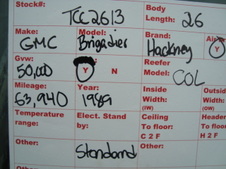 Stock#: TCC2613 Body Length: 26
Make: GMC Model: Brigadier Brand: Hackney Air Y
Gvw: 50,000 Y N Reefer Model: COL
Mileage: 63,940 Year: 1989 Inside Width: (IW) Outside Width: (OW)
Temperature range: Elect. Stand by: Ceiling To floor: C 2 F Header To floor: H 2 F
Other: Standard Other: